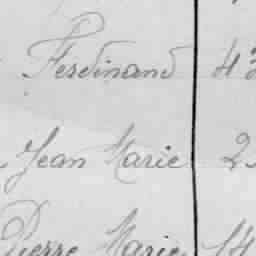 Ferdinand 42
Jean Marie 2
Pierre Marie 14